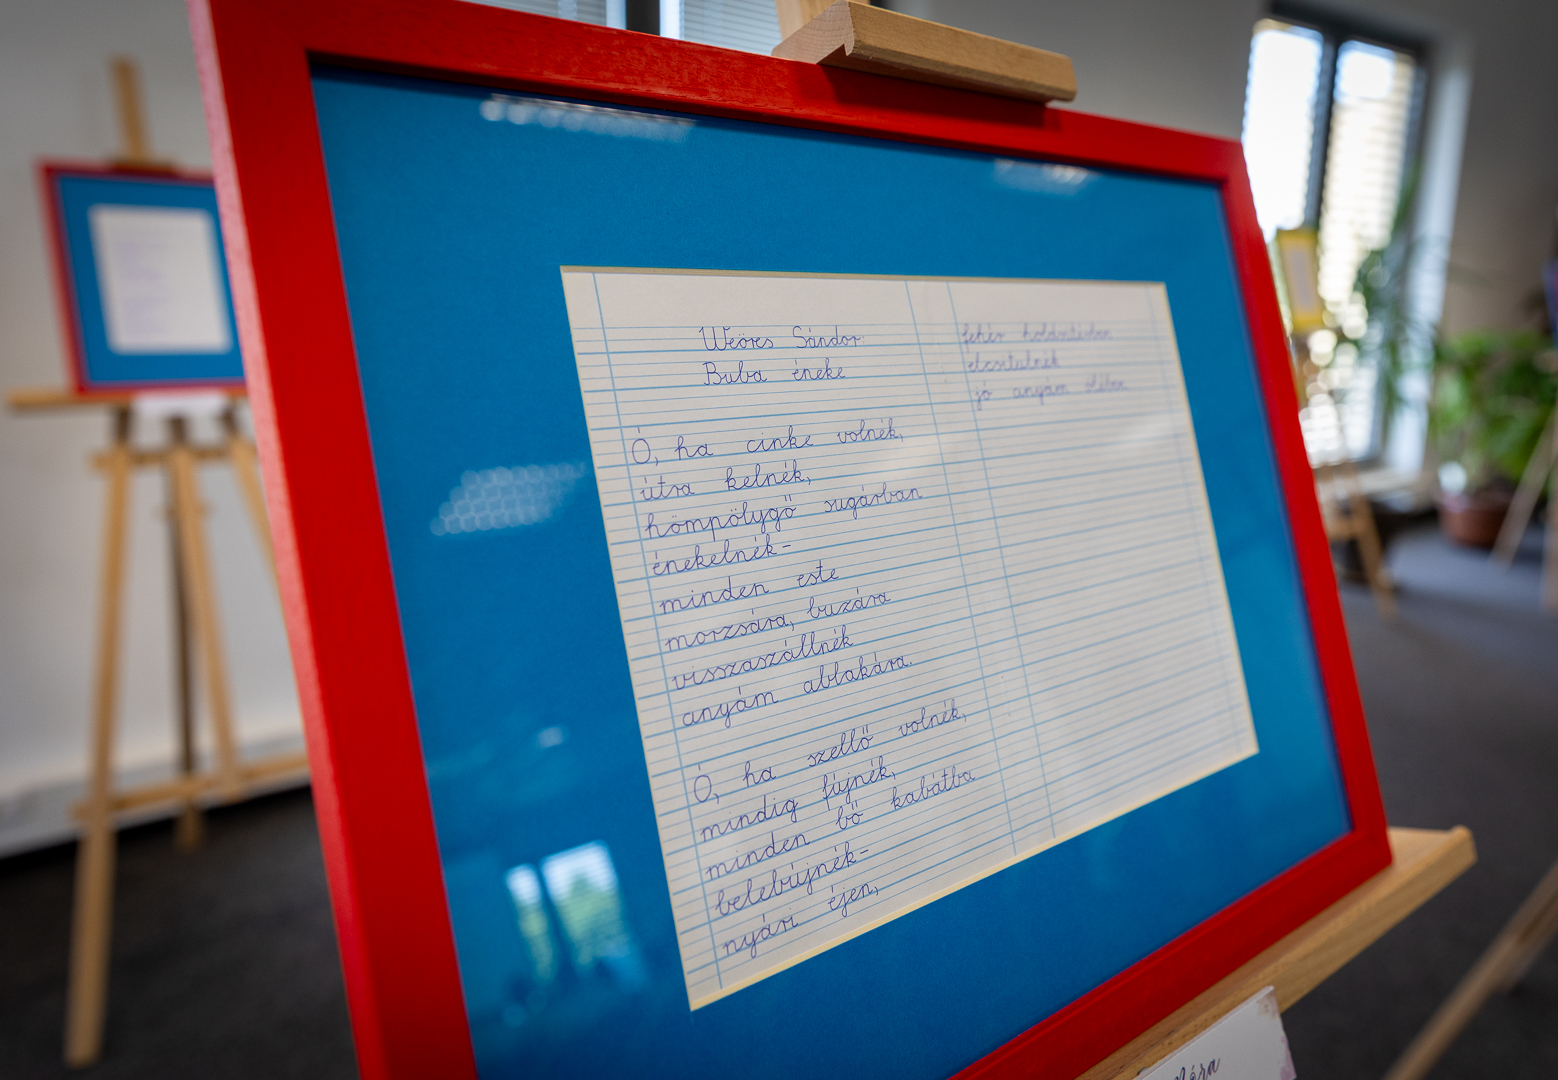 Weöres Sándor:
Buba éneke
Ó, ha cinke volnék,
útra kelnék,
hömpölygő sugárban
énekelnék-
minden este
morzsára, buzára
visszaszállnék
anyám ablakára.
Ó, ha szellő volnék,
mindig fújnék,
minden bő kabátba
belebújnék-
nyári éjen,
fehér holdsütésben
elcsitulnék
jó anyám ölében